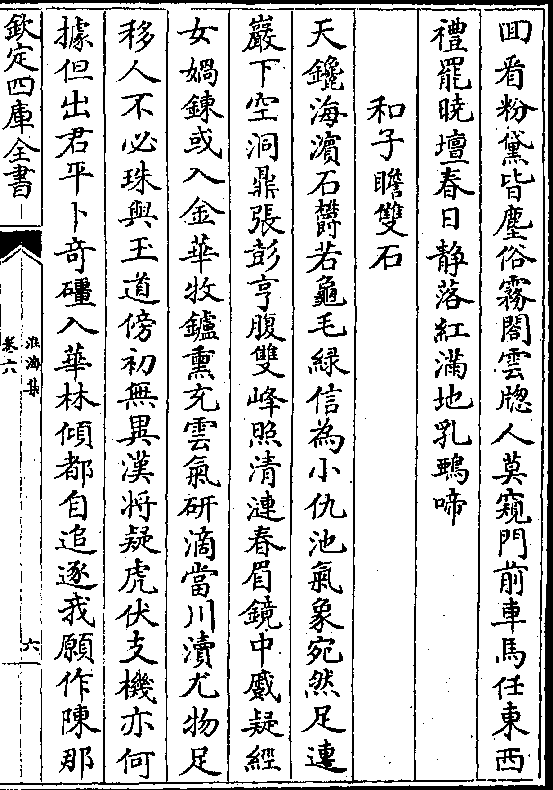 回看粉黛皆塵俗霧閣雲牕人莫窺門前車馬任東西
禮罷曉壇春日静落紅滿地乳鵶啼
和子瞻雙石
天鑱海濱石欝若龜毛緑信為小仇池氣象宛然足連
巖下空洞鼎張彭亨腹雙峰照清漣春眉鏡中蹙疑經
女媧鍊或入金華牧鑪熏充雲氣研滴當川瀆尤物足
移人不必珠與玉道傍初無異漢将疑虎伏支機亦何
據但出君平卜奇礓入華林傾都自追逐我願作陳那
欽定四庫全書
淮海集
卷六
六